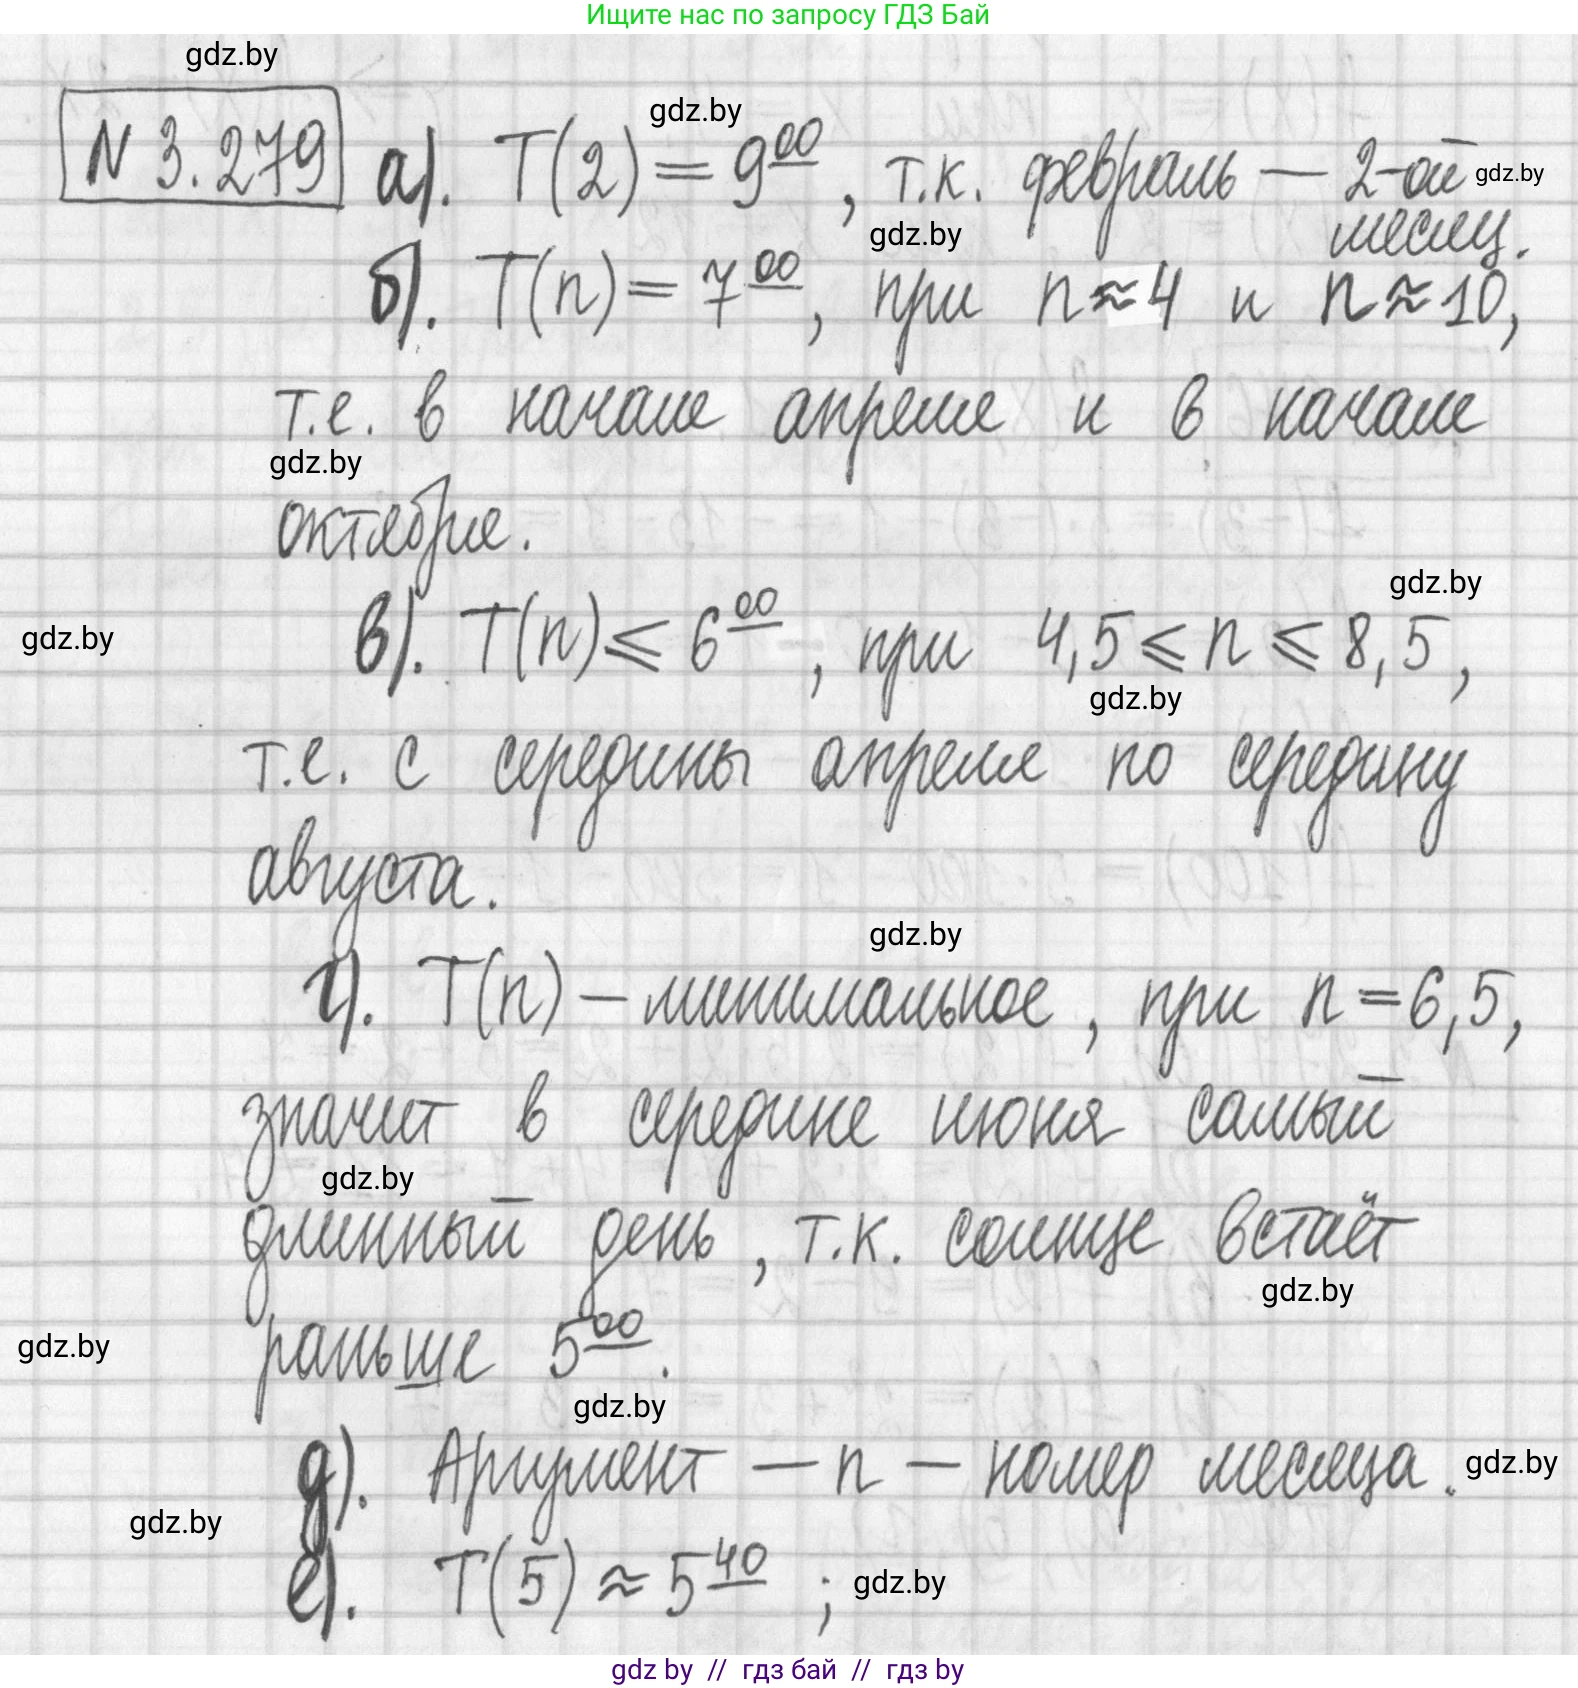 Ищите нас по запросу ГДЗ Бай
gdz.by
gdz.by
N 3.279 а). T(2) = 9⁰⁰, т.к. февраль — 2-ой gdz.by
месяц.
gdz.by
б). T(n) = 7⁰⁰, при n≈4 и n≈10,
т.е. в начале апреля и в начале
gdz.by
октября.
gdz.by
gdz.by
в). T(n) ⩽ 6⁰⁰, при 4,5 ⩽ n ⩽ 8,5,
gdz.by
т.е. с середины апреля по середину
августа.
gdz.by
г). T(n) — минимальное, при n = 6,5,
значит в середине июня самый
gdz.by
длинный день, т.к. солнце встаёт
gdz.by
раньше 5⁰⁰.
gdz.by
gdz.by
д). Аргумент — n — номер месяца. gdz.by
gdz.by
е). T(5) ≈ 5⁴⁰ ; gdz.by
gdz by // гдз бай // гдз by